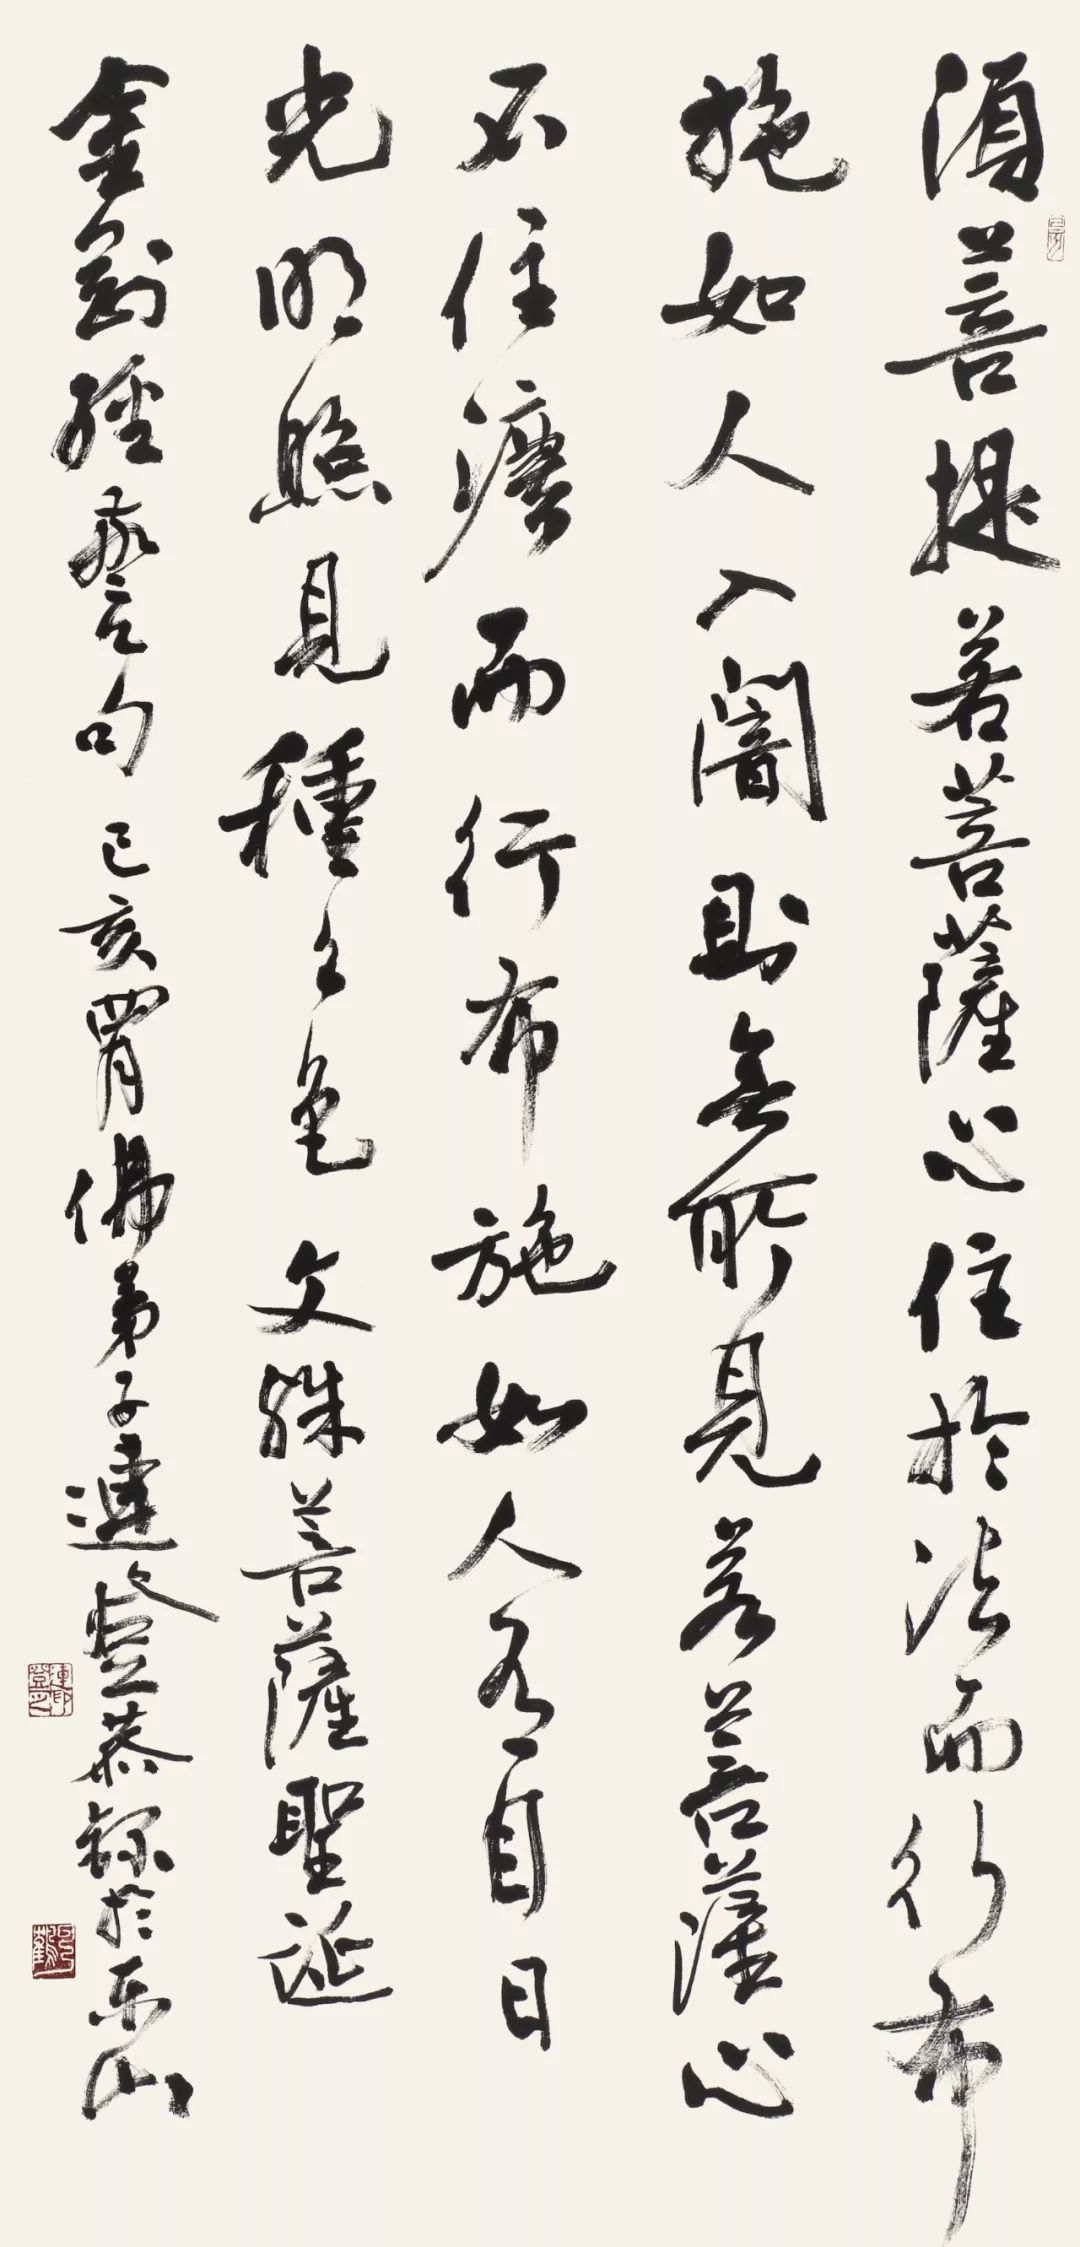 須菩提若菩薩心住於法而行布
施如人入闇則無所見若菩薩心
不住灋而行布施如人有目日
光明照見種々色 文殊菩薩聖誕
金剛經警句 己亥佛弟子連登恭録於山